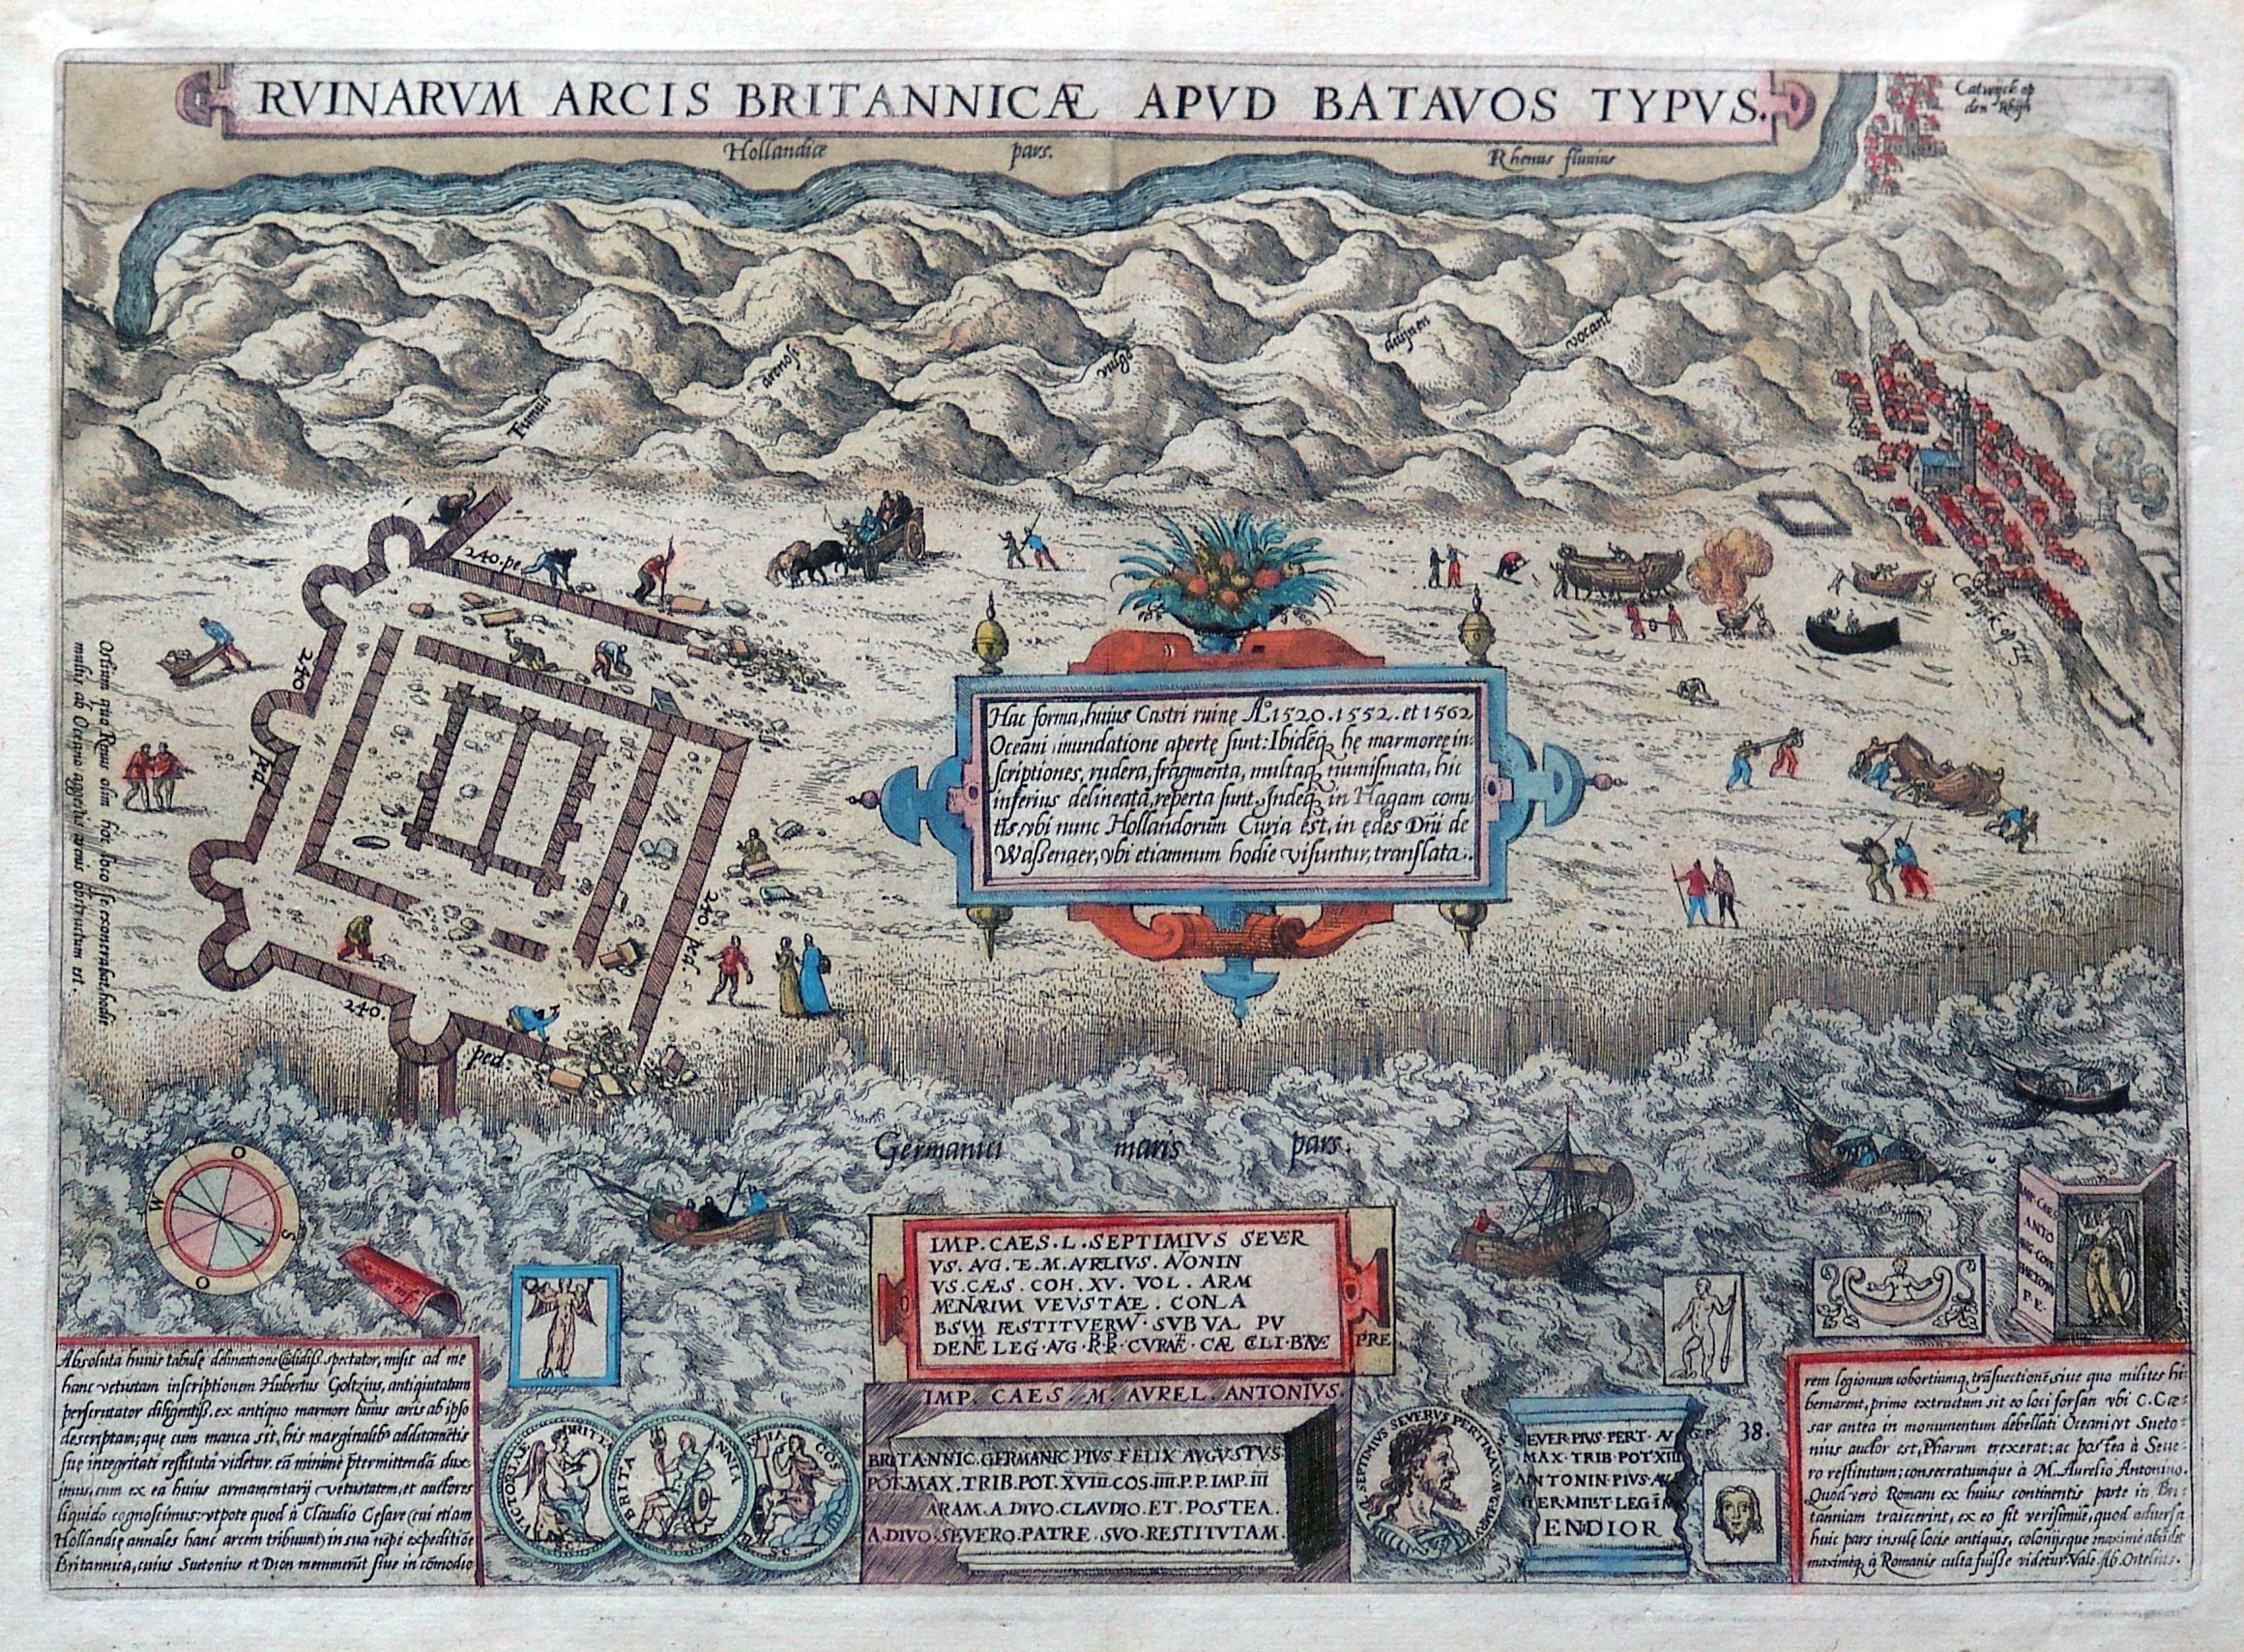 RVINARVM ARCIS BRITANNICÆ APVD BATAVOS TYPVS.
Catwijck op
den Rhijn
Hollandiæ pars.
Rhenus fluuius
Tumuli arenosi vulgo duijnen vocant
240. pe
240
ped.
240. ped.
240.
ped.
Catwijck op Zee
Ostium quo Renus olim hoc loco se exonerabat, hodie
multis ab Oceano aggestis arenis obstructum est.
Hac forma, huius Castri ruinę Aº. 1520. 1552. et 1562
Oceani inundatione apertę sunt: Ibidēq̢ hę marmoreę in-
scriptiones, rudera, fragmenta, multaq̢ numismata, hic
inferius delineata, reperta sunt. Indeq̢ in Hagam comi-
tis, vbi nunc Hollandorum Curia est, in ędes Dn̄i de
Waßenaer, vbi etiamnum hodie visuntur, translata.
Germanici maris pars.
O
W
S
O
IMP. CAES. L. SEPTIMIVS SEVER
VS. AVG. ET. M. AVRELIVS. ANTONIN
VS. CAES. COH. XV. VOL. ARM
AMENTARIVM VETVSTATE. CONLA
BSVM RESTITVERVNT. SVB VAL PV
DENTE LEG. AVG. PR. PR. CVRANTE. CÆ CILI. BATVE PRE
IMP. CAES
ANTO
P. E.
IMP. CAES. M. AVREL. ANTONIVS.
BRITANNIC. GERMANIC PIVS FELIX AVGVSTVS
POT. MAX. TRIB. POT. XVIII. COS. IIII. P. P. IMP. III
ARAM. A DIVO. CLAVDIO. ET. POSTEA.
A. DIVO. SEVERO. PATRE. SVO. RESTITVTAM.
VICTORIAE BRITTA
S. C.
BRITA NNIA
S. C.
COS
S. C.
SEVERVS PERTINAX AVG
SEVER PIVS. PERT. AV G.
MAX. TRIB. POT. XIII
ANTONIN. PIVS. AV
GER MILIT. LEG. I
ENDIOR
38.
Absoluta huius tabulę delineatione Cādidiß. spectator, misit ad me
hanc vetustam inscriptionem Hubertus Goltzius, antiquitatum
perscrutator diligentiß. ex antiquo marmore huius arcis ab ipso
descriptam; quę cum manca sit, his marginalib⁹ additamētis
suę integritati restituta videtur. eā minimè p̄termittendā dux-
imus, cum ex ea huius armamentarij vetustatem, et auctores
liquido cognoscimus: vtpote quod à Claudio Cęsare (cui etiam
Hollandię annales hanc arcem tribuunt) in sua nēpe expeditiōe
Britannica, cuius Suetonius et Dion meminerūt siue in cōmodio
rem legionum cohortiumq̢ trāsuectionē, siue quo milites hi-
bernarent, primo extructum sit eo loci forsan vbi C. Cæ-
sar antea in monumentum debellati Oceani vt Sueto-
nius auctor est, Pharum erexerat: ac postea à Seue-
ro restitutum; consecratumque à M. Aurelio Antonino.
Quod verò Romani ex huius continentis parte in Bri-
tanniam traiecerint, ex eo fit verisimile, quod aduersa
huic pars insulę locis antiquis, colonijsque maximè abūdet
maximeq̢ à Romanis culta fuisse videtur. Vale. Ab. Ortelius.